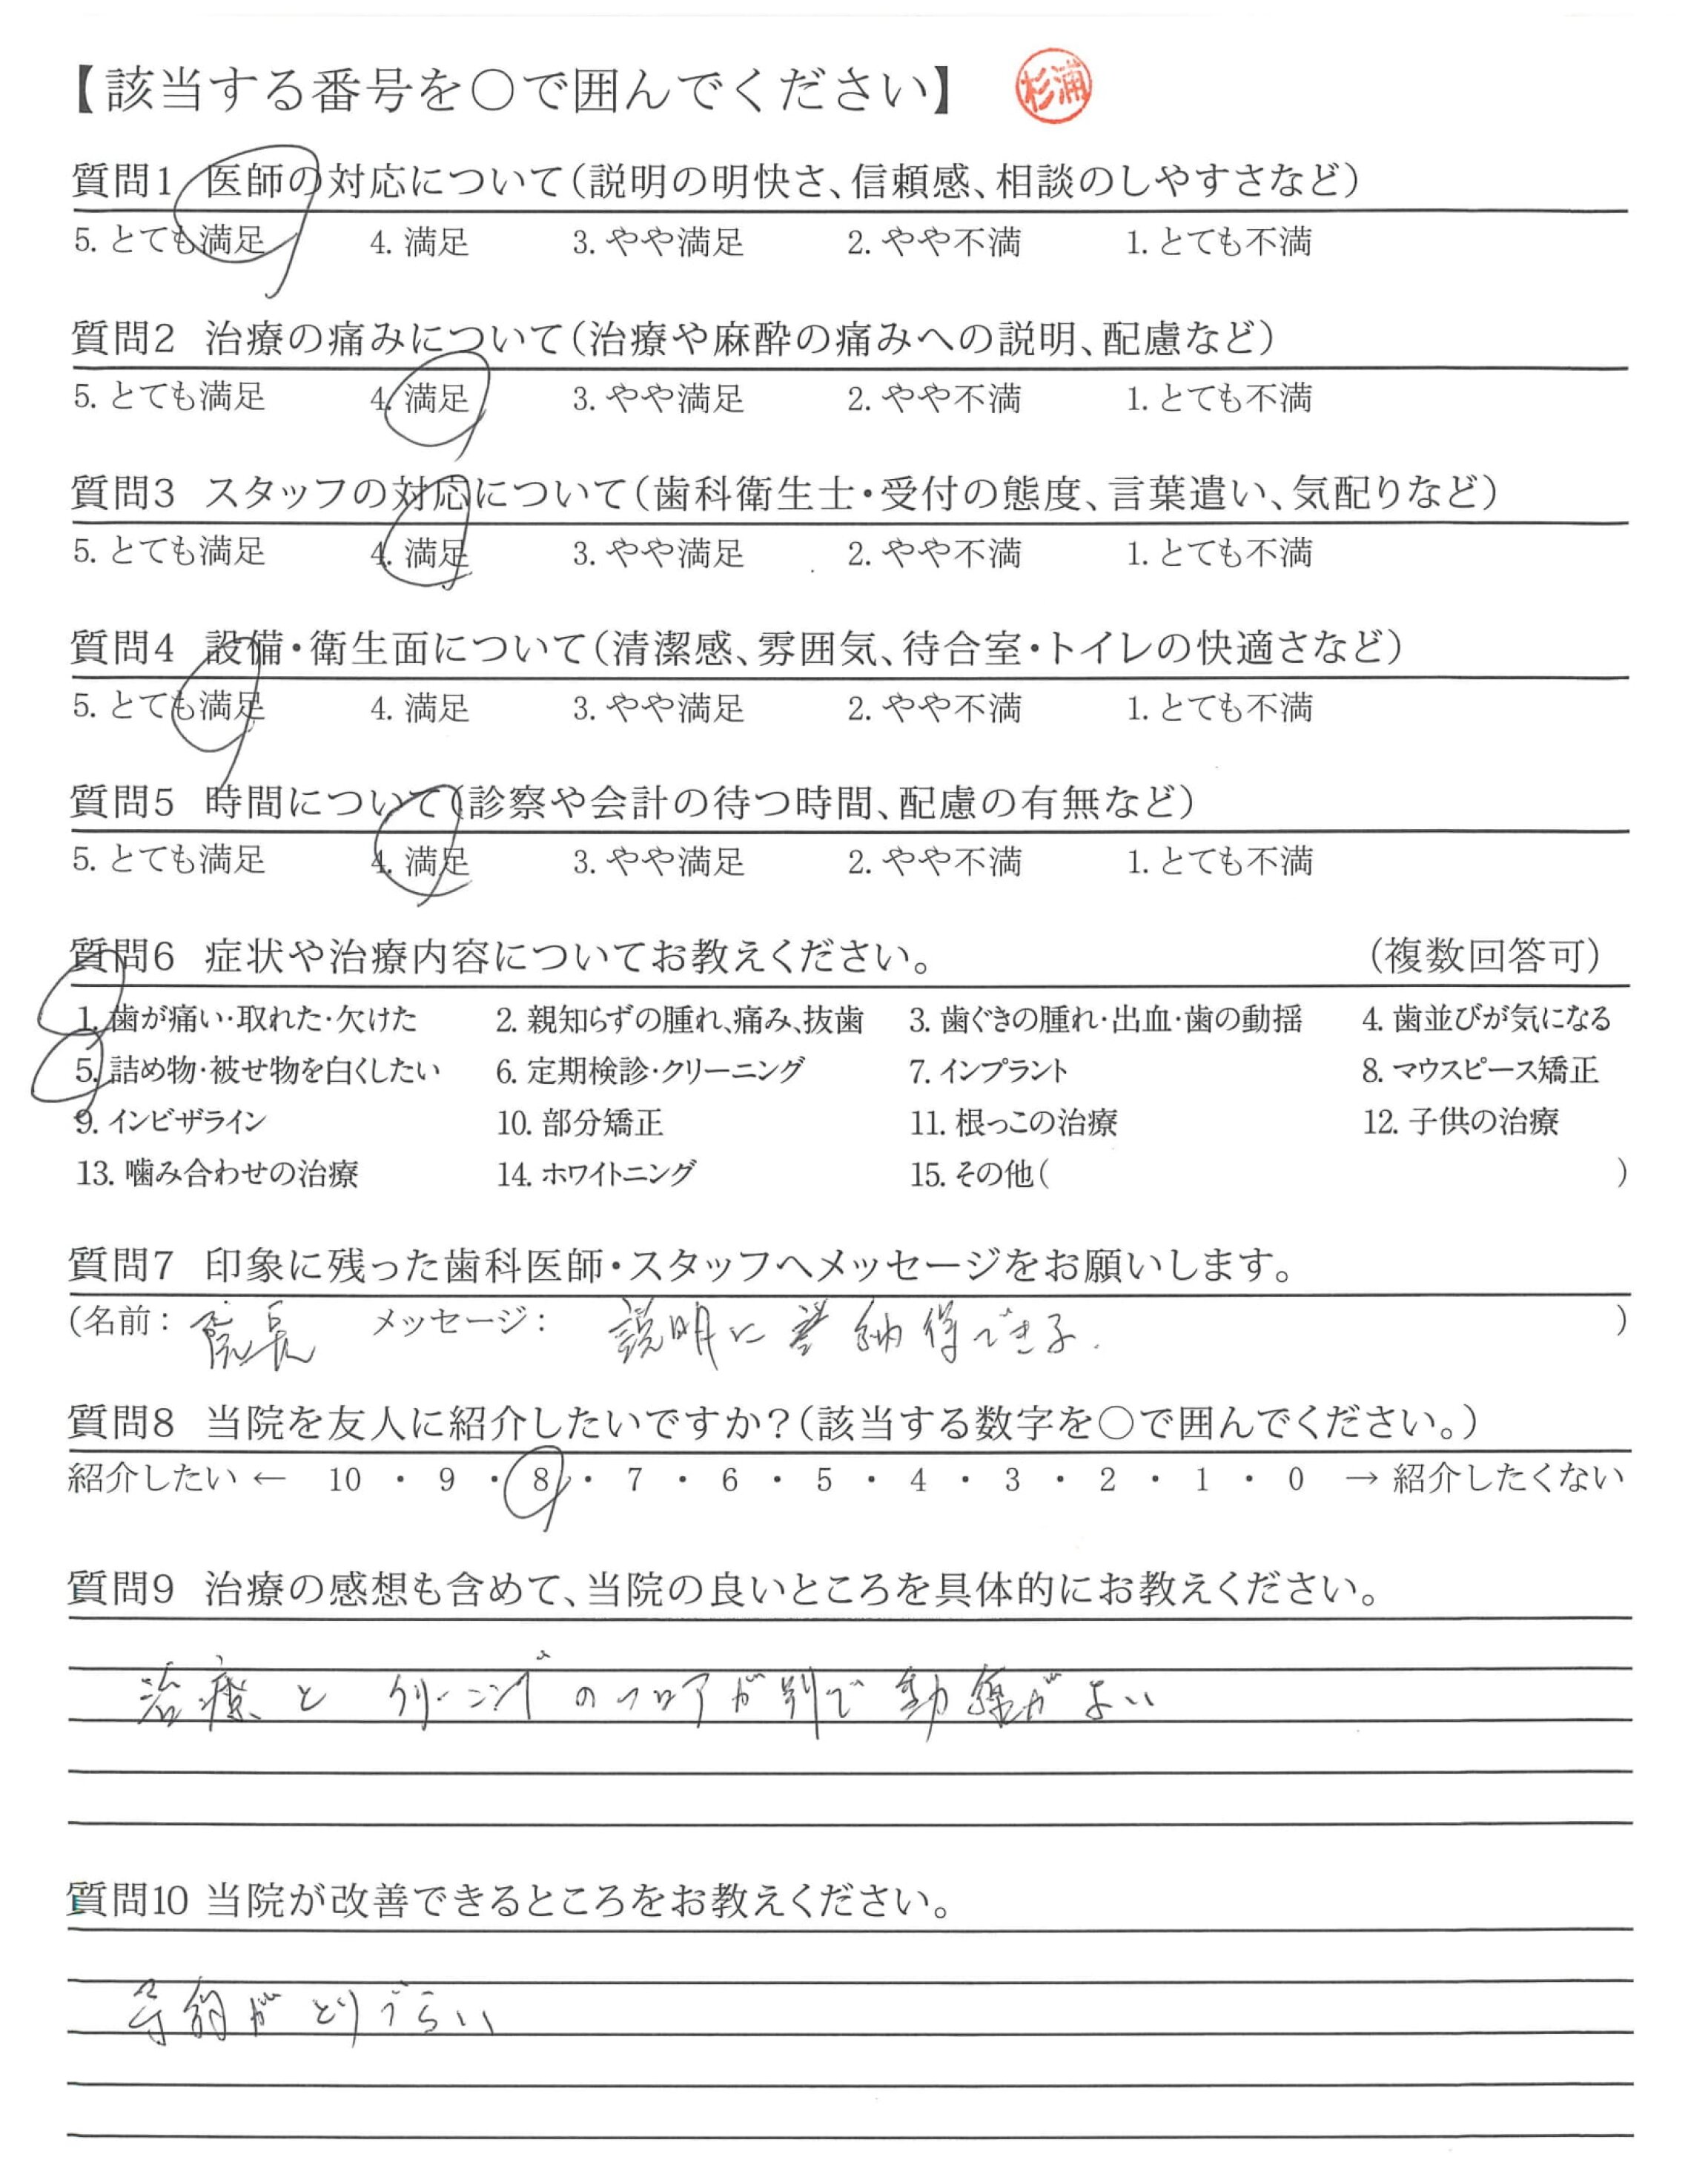 【該当する番号を○で囲んでください】 杉浦
質問1 医師の対応について（説明の明快さ、信頼感、相談のしやすさなど）
5. とても満足 4. 満足 3. やや満足 2. やや不満 1. とても不満
質問2 治療の痛みについて（治療や麻酔の痛みへの説明、配慮など）
5. とても満足 4. 満足 3. やや満足 2. やや不満 1. とても不満
質問3 スタッフの対応について（歯科衛生士・受付の態度、言葉遣い、気配りなど）
5. とても満足 4. 満足 3. やや満足 2. やや不満 1. とても不満
質問4 設備・衛生面について（清潔感、雰囲気、待合室・トイレの快適さなど）
5. とても満足 4. 満足 3. やや満足 2. やや不満 1. とても不満
質問5 時間について（診察や会計の待つ時間、配慮の有無など）
5. とても満足 4. 満足 3. やや満足 2. やや不満 1. とても不満
質問6 症状や治療内容についてお教えください。 （複数回答可）
1. 歯が痛い・取れた・欠けた 2. 親知らずの腫れ、痛み、抜歯 3. 歯ぐきの腫れ・出血・歯の動揺 4. 歯並びが気になる
5. 詰め物・被せ物を白くしたい 6. 定期検診・クリーニング 7. インプラント 8. マウスピース矯正
9. インビザライン 10. 部分矯正 11. 根っこの治療 12. 子供の治療
13. 噛み合わせの治療 14. ホワイトニング 15. その他（ ）
質問7 印象に残った歯科医師・スタッフへメッセージをお願いします。
（名前： 院長 メッセージ： 説明に 納得できる. ）
質問8 当院を友人に紹介したいですか？（該当する数字を○で囲んでください。）
紹介したい ← 10 ・ 9 ・ 8 ・ 7 ・ 6 ・ 5 ・ 4 ・ 3 ・ 2 ・ 1 ・ 0 → 紹介したくない
質問9 治療の感想も含めて、当院の良いところを具体的にお教えください。
治療と クリーニングのフロアが別で動線がよい
質問10 当院が改善できるところをお教えください。
予約がとりづらい